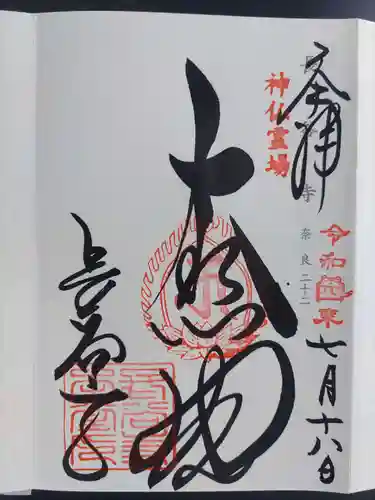 奉拝
長谷寺
奈良二十二
神仏霊場
令和
七月十八日
大悲閣
長谷寺